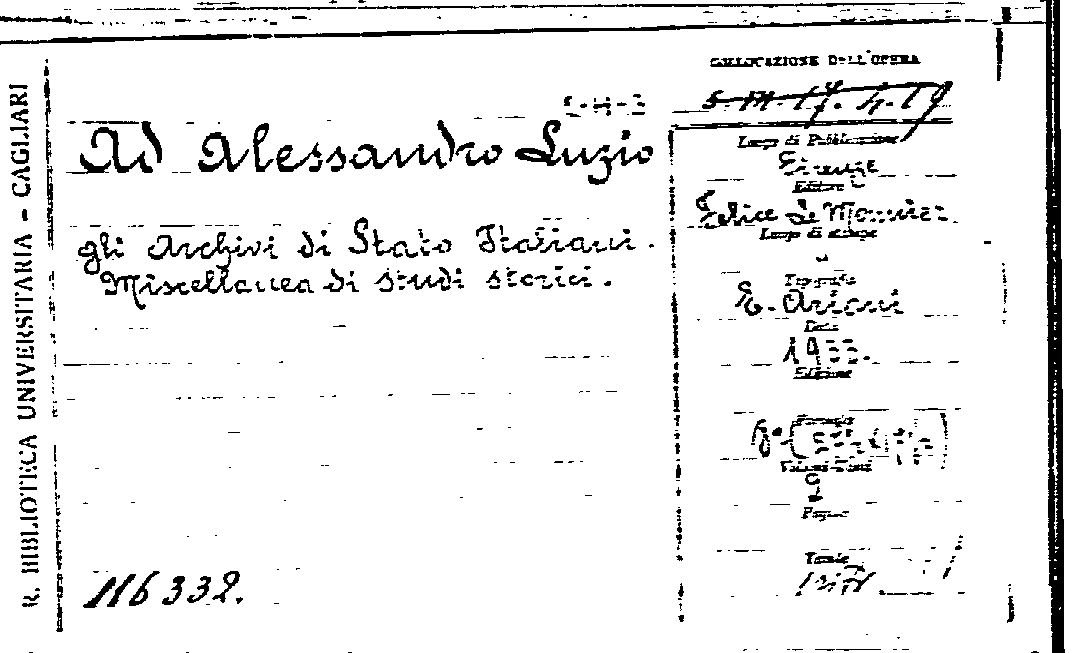 R. BIBLIOTECA UNIVERSITARIA - CAGLIARI
COLLOCAZIONE DELL'OPERA
Ad Alessandro Luzio
Luogo di Pubblicazione
Firenze
Editore
gli Archivi di Stato Italiani.
Felice Le Monnier.
Luogo di stampa
Miscellanea di studi storici.
Tipografia
E. Ariani
Data
1933.
Edizione
Formato
8°
Volumi-Tomi
2
Pagine
116332.